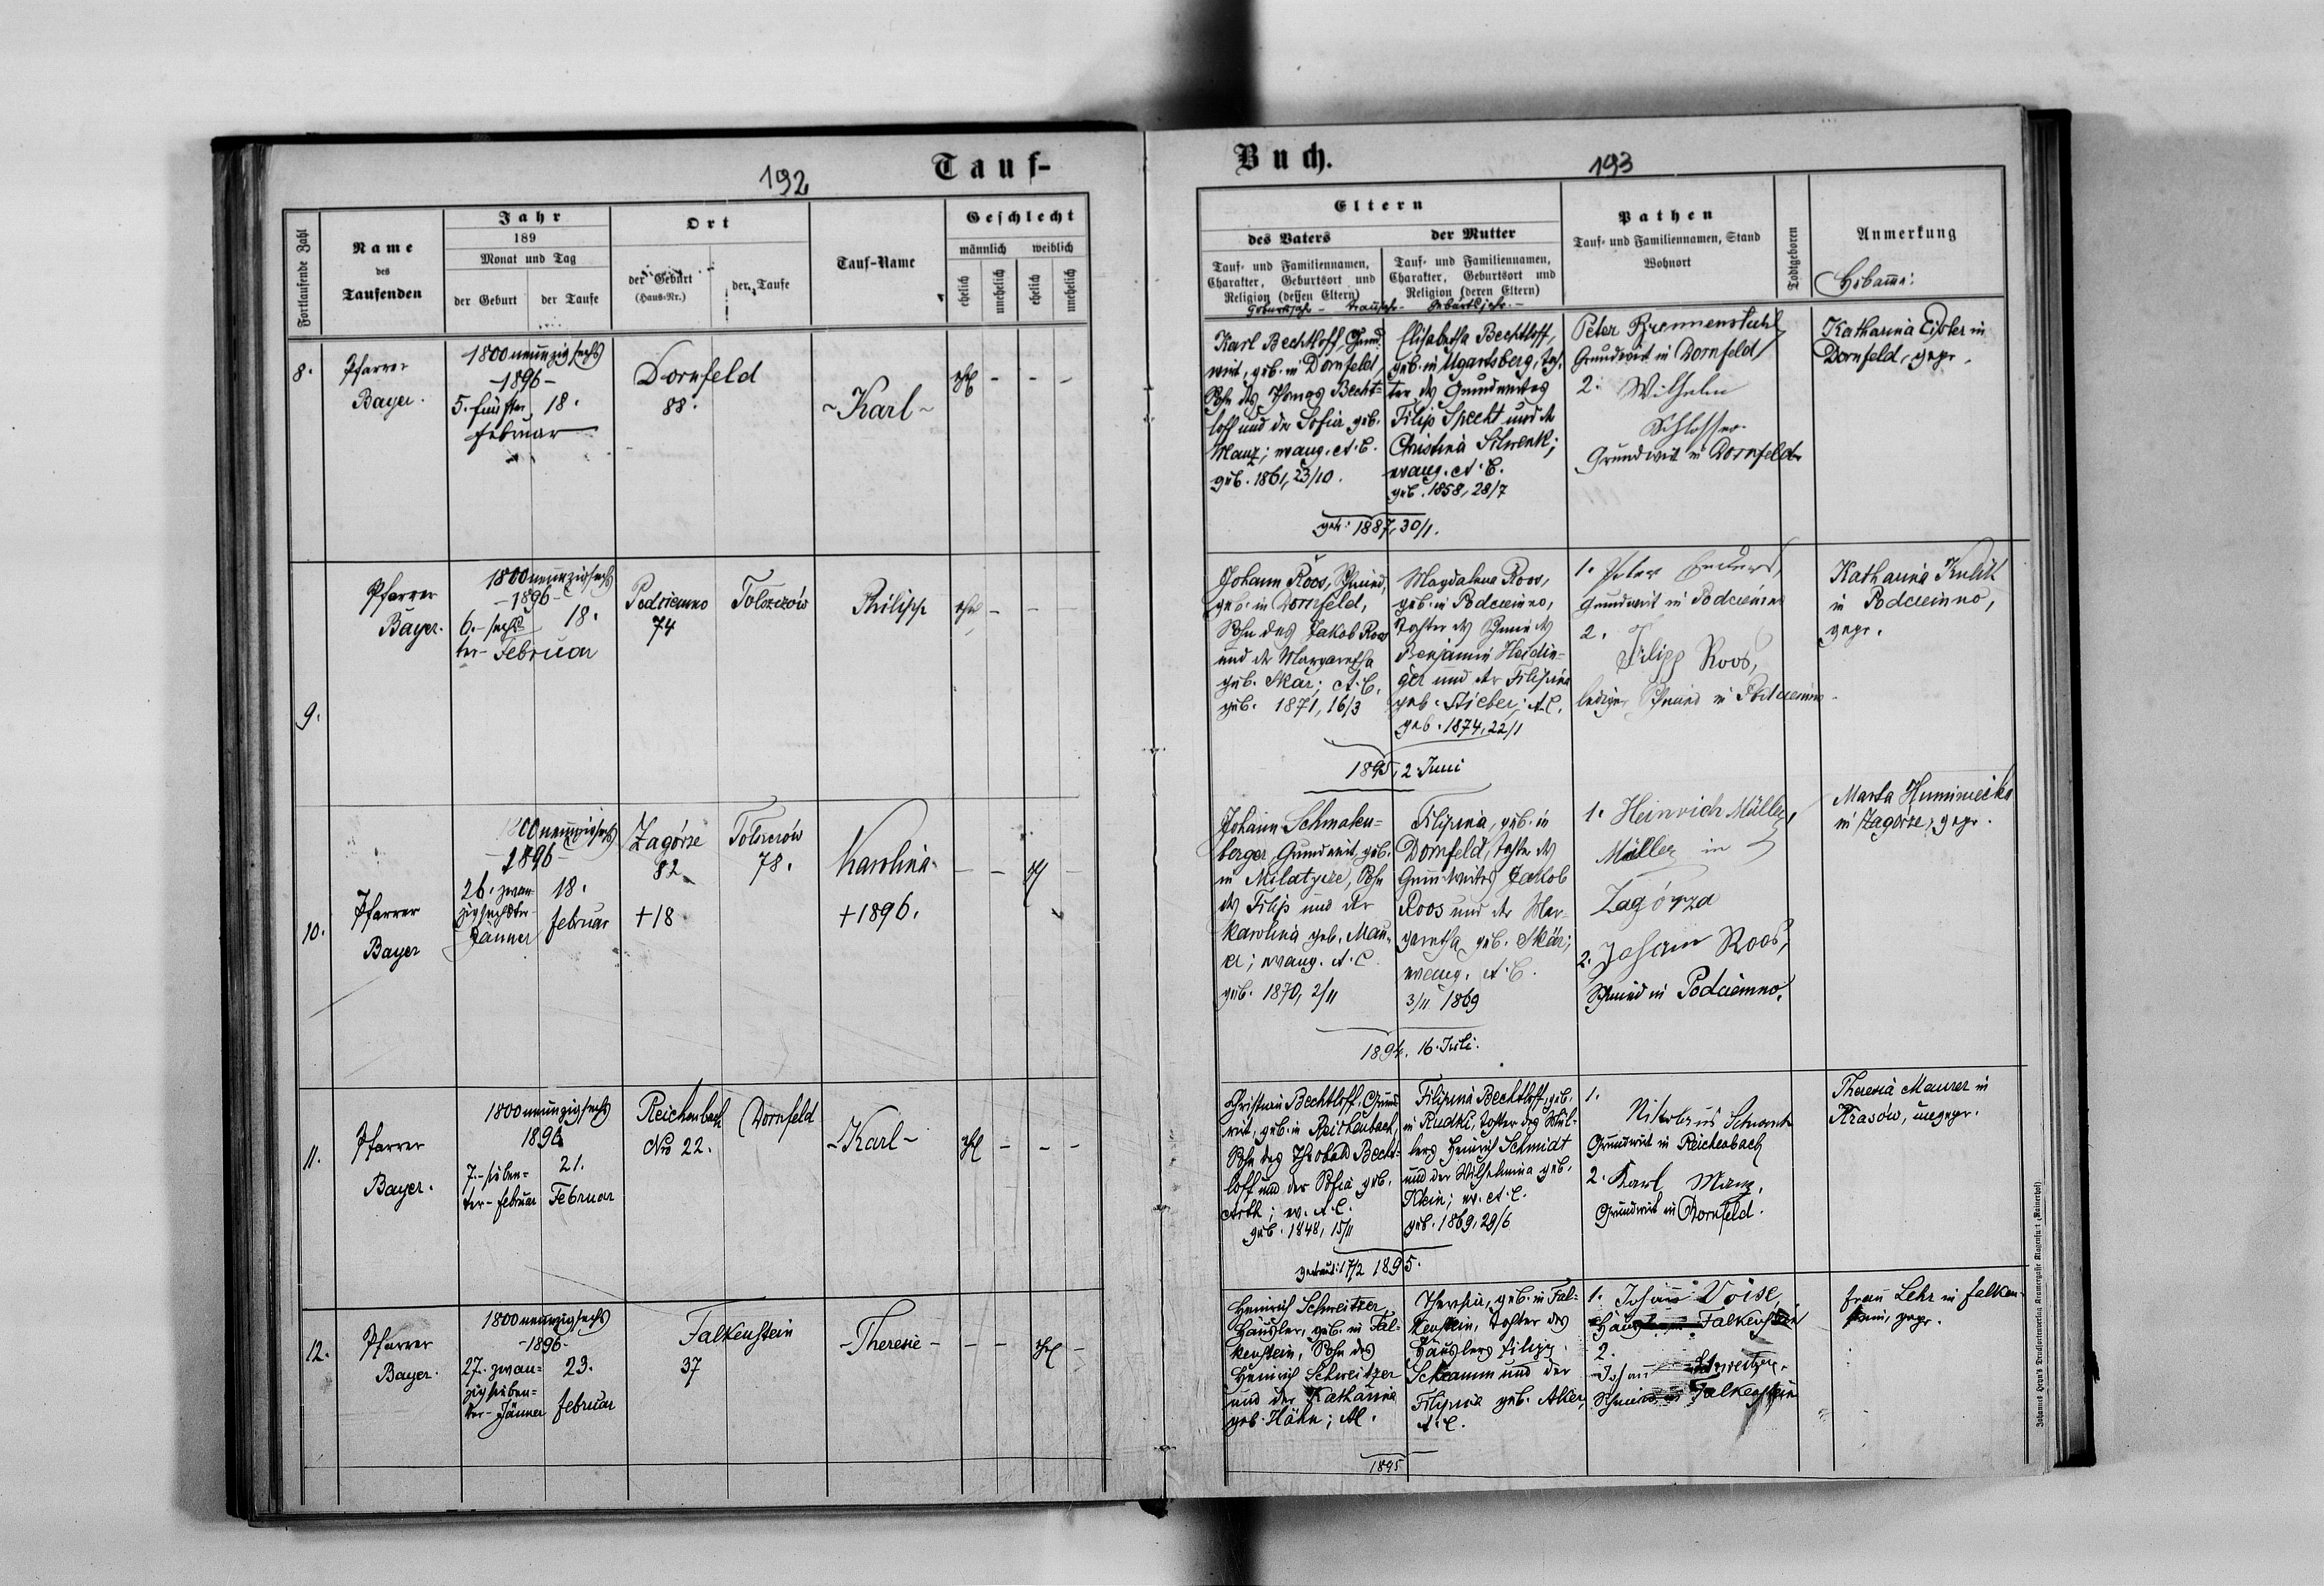 192
Tauf-
Fortlaufende Zahl
Name
des
Taufenden
Jahr
189
Monat und Tag
der Geburt
der Taufe
Ort
der Geburt
(Haus-Nr.)
der Taufe
Tauf-Name
Geschlecht
männlich
weiblich
ehelich
unehelich
ehelich
unehelich
8.
Pfarrer
Bayer.
1800 neunzigsechs
-1896-
5. fünfter 18.
Februar
Dornfeld
88.
-Karl-
ehel - - -
9.
Pfarrer
Bayer.
1800 neunzigsechs
-1896-
6.- sechs- 18.
ter- Februar
Podciemno
74
Tolszczów
Philipp
ehel - - -
10.
Pfarrer
Bayer
1800 neunzigsechs
1896-
26. zwan- 18.
zigsechster-
Jänner Februar
Zagórze
82
+18
Tolszczów
78.
Karolina
+1896.
- - -
11.
Pfarrer
Bayer.
1800 neunzigsechs
1896
7.- sieben- 21.
ter- Februar Februar
Reichenbach
Nro 22.
Dornfeld
-Karl-
ehel - - -
12.
Pfarrer
Bayer.
1800 neunzigsechs
-1896-
27. zwan- 23.
zigsieben-
ter- Jänner Februar
Falkenstein
37
-Theresie-
- - ehel -
Buch.
193
Eltern
des Vaters
der Mutter
Tauf- und Familiennamen,
Charakter, Geburtsort und
Religion (dessen Eltern)
Geburtsjahr -
Tauf- und Familiennamen,
Charakter, Geburtsort und
Religion (deren Eltern)
Traujahr - Geburtsjahr -
Pathen
Tauf- und Familiennamen, Stand
Wohnort
Todtgeboren
Anmerkung
Hebamme:
Karl Bechtloff, Grund-
wirt, geb. in Dornfeld,
Sohn des Thomas Becht-
loff und der Sofia geb.
Manz; evang. A. C.
geb. 1861, 23/10.
Elisabetha Bechtloff,
geb. in Ugartsberg, Toch-
ter des Grundwirtes
Filip Specht und der
Christina Schwenk;
evang. A. C.
geb. 1858, 28/7
1887, 30/1.
Peter Brennenstuhl,
Grundwirt in Dornfeld
2. Wilhelm
Schlosser
Grundwirt in Dornfeld
Katharina Eisler in
Dornfeld, gepr.
Johann Roos, Schmied,
geb. in Dornfeld,
Sohn des Jakob Roos
und der Margaretha
geb. Skär; A. C.
geb. 1871, 16/3
Magdalena Roos,
geb. in Podciemno,
Tochter des Schmieds
Benjamin Heidin-
ger und der Filipina
geb. Stieber; A. C.
geb. 1874, 22/1
1895, 2. Juni
1. Peter
Grundwirt in Podciemno
2.
Filipp Roos,
lediger Schmied in Podciemno
Katharina Kulik
in Podciemno,
gepr.
Johann Schmalen-
berger, Grundwirt, geb.
in Milatycze, Sohn
des Filip und der
Karolina geb. Mau-
rer; evang. A. C.
geb. 1870, 2/11
Filipina, geb. in
Dornfeld, Tochter des
Grundwirtes Jakob
Roos und der Mar-
garetha geb. Skär;
evang. A. C.
3/11 1869
1894. 16. Juli.
1. Heinrich Müller,
Müller in
Zagórza
2. Johann Roos,
Schmied in Podciemno.
Marta Huminiecka
in Zagórze, gepr.
Christian Bechtloff, Grund-
wirt, geb. in Reichenbach,
Sohn des Theobald Becht-
loff und der Sofia geb.
Arth; ev. A. C.
geb. 1848, 15/11
Filipina Bechtloff, geb.
in Rudki, Tochter des Mül-
lers Heinrich Schmidt
und der Wilhelmina geb.
Klein; ev. A. C.
geb. 1869, 29/6
getraut: 17/2 1895.
1.
Nikolaus Schwank
Grundwirt in Reichenbach
2. Karl Manz,
Grundwirt in Dornfeld.
Theresia Maurer in
Krasów, ungepr.
Heinrich Schweitzer,
Häusler, geb. in Fal-
kenstein, Sohn des
Heinrich Schweitzer
und der Katharina
geb. Hahn; A.C.
Theresia, geb. in Fal-
kenstein, Tochter des
Häuslers Filipp
Schramm und der
Filipina geb. Alker,
A. C.
1895
1. Johann Voise,
Falkenstein
2.
Johann Schweitzer,
Schmied in Falkenstein
Frau Lehr in Falken-
stein, gepr.
Johannes Heyn's Drucksortenverlag Kramergasse Klagenfurt (Rainerhof)